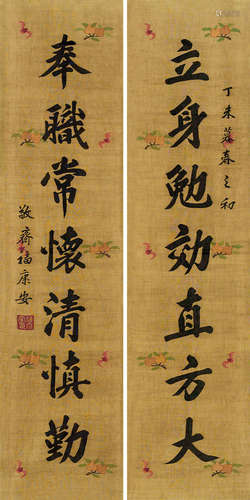 立身勉効直方大
丁未暮春之初
奉職常懷清慎勤
敬齋福康安